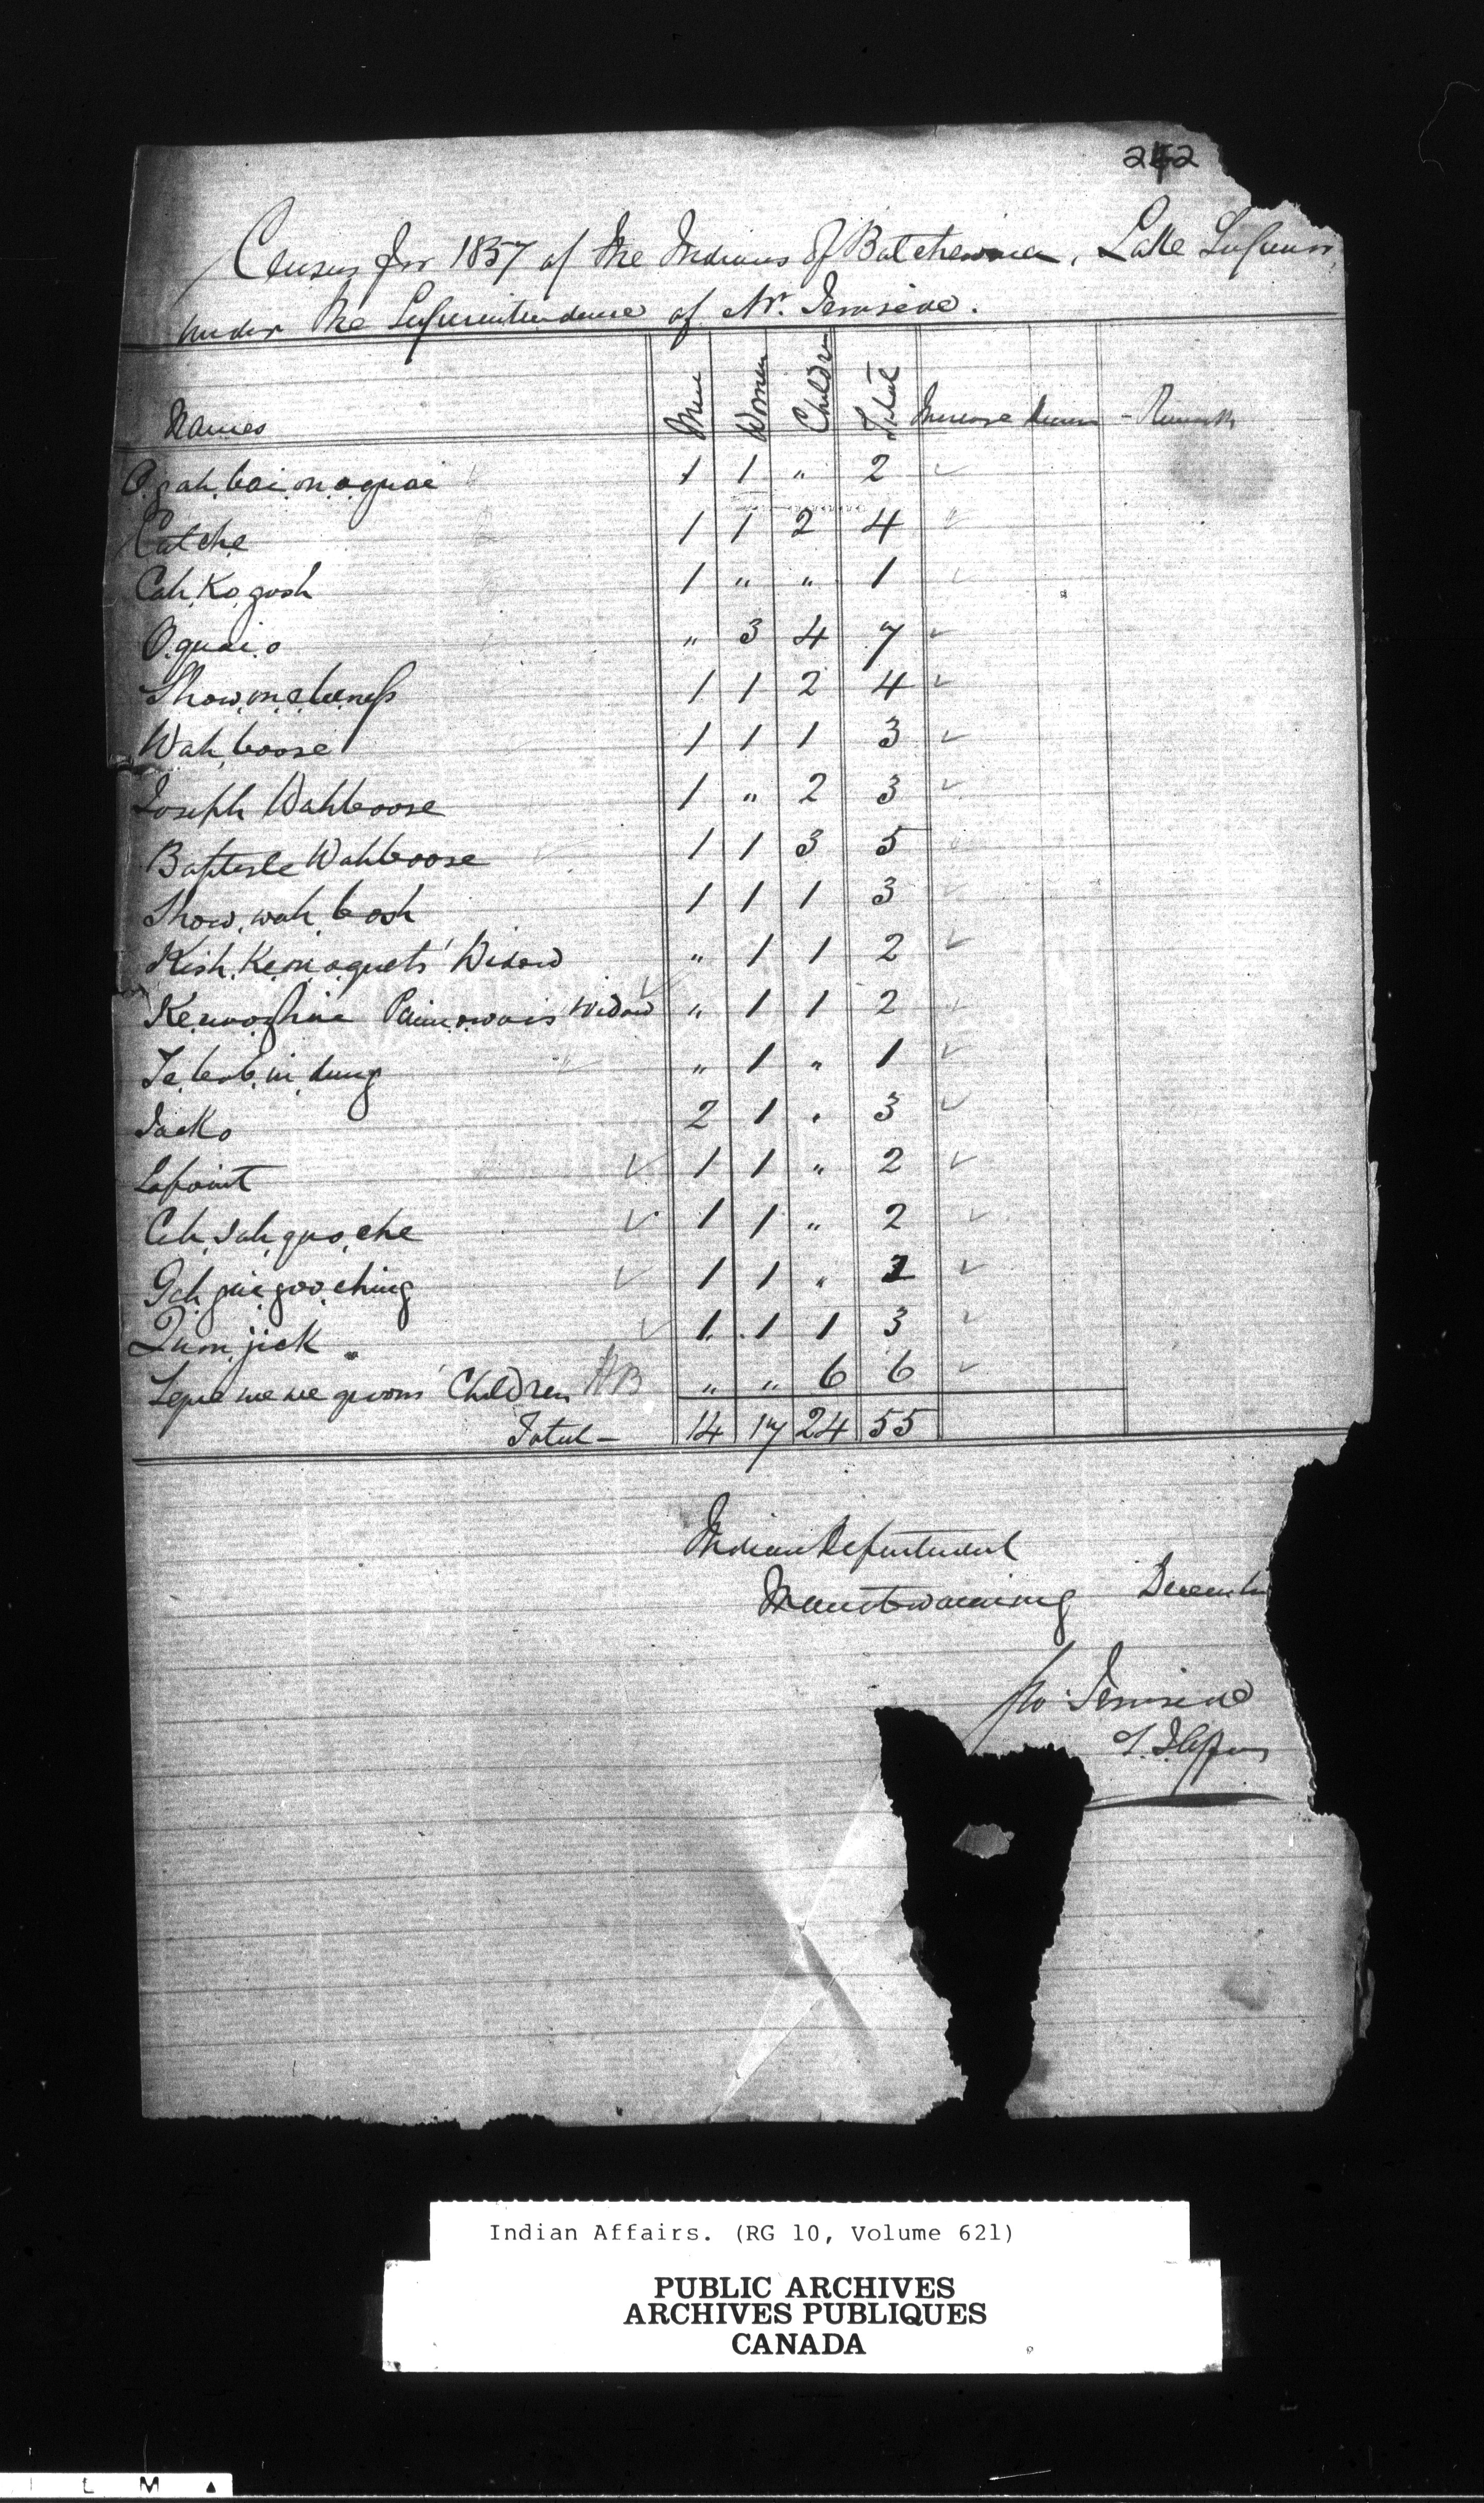 242
Census for 1857 of the Indians of Batchewana, Lake Superior,
under the Superintendence of Mr. Ironside.
Names Men Women Children Total Increase Decrease Remarks
O.gah.bai.on.o.quai 1 1 " 2
Catche 1 1 2 4
Cah.Ko.gosh 1 " " 1
O.quai.o " 3 4 7
Show.on.e.beness 1 1 2 4
Wah.boose 1 1 1 3
Joseph Wahboose 1 " 2 3
Baptiste Wahboose 1 1 3 5
Show.wah.bosh 1 1 1 3
Kish.Ke.on.o.quets' Widow " 1 1 2
Widow " 1 1 2
Te.beb.in.dung " 1 " 1
Jacko 2 1 " 3
Lapoint ✓ 1 1 " 2
Cah.dah.quo.che ✓ 1 1 " 2
✓ 1 1 " 2
Qum.jick ✓ 1 1 1 3
Children " " 6 6
Total - 14 17 24 55
Indian Department
Manitowaning December
Ironside
Indian Affairs. (RG 10, Volume 621)
PUBLIC ARCHIVES
ARCHIVES PUBLIQUES
CANADA
I L M